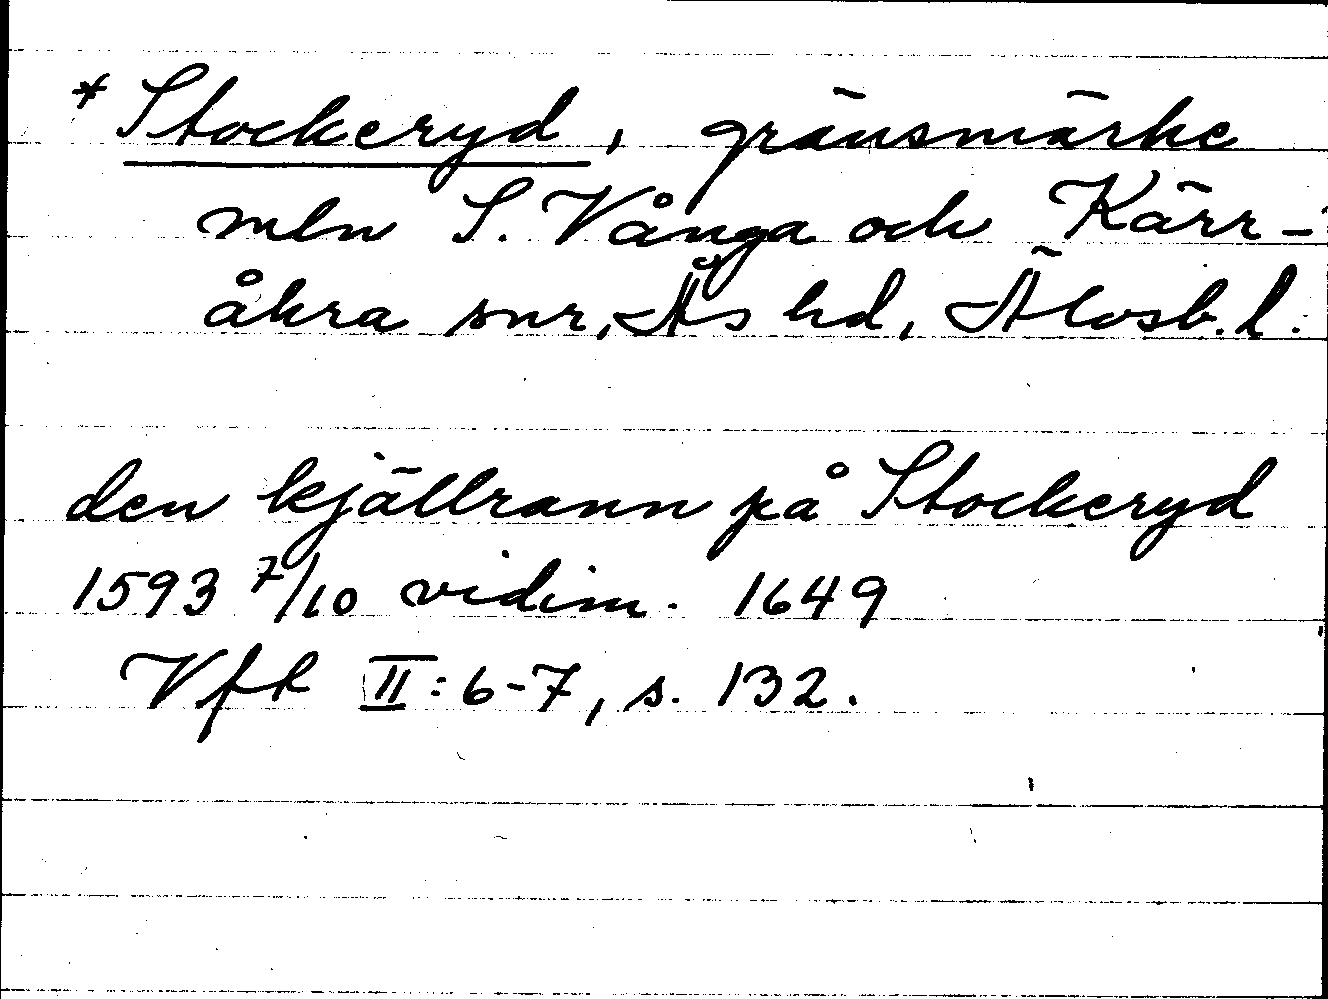 * Stockeryd, gränsmärke
mln S. Vånga och Kärr-
åkra snr, Ås hd, Älvsb. l.
den kjällrann på Stockeryd
1593 7/10 vidim. 1649
Vfk II: 6-7, s. 132.